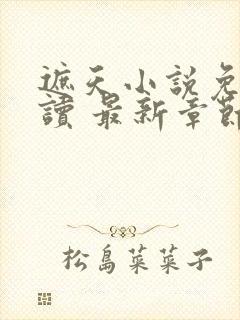 遮天小說免
讀 最新章節
松島菜菜子